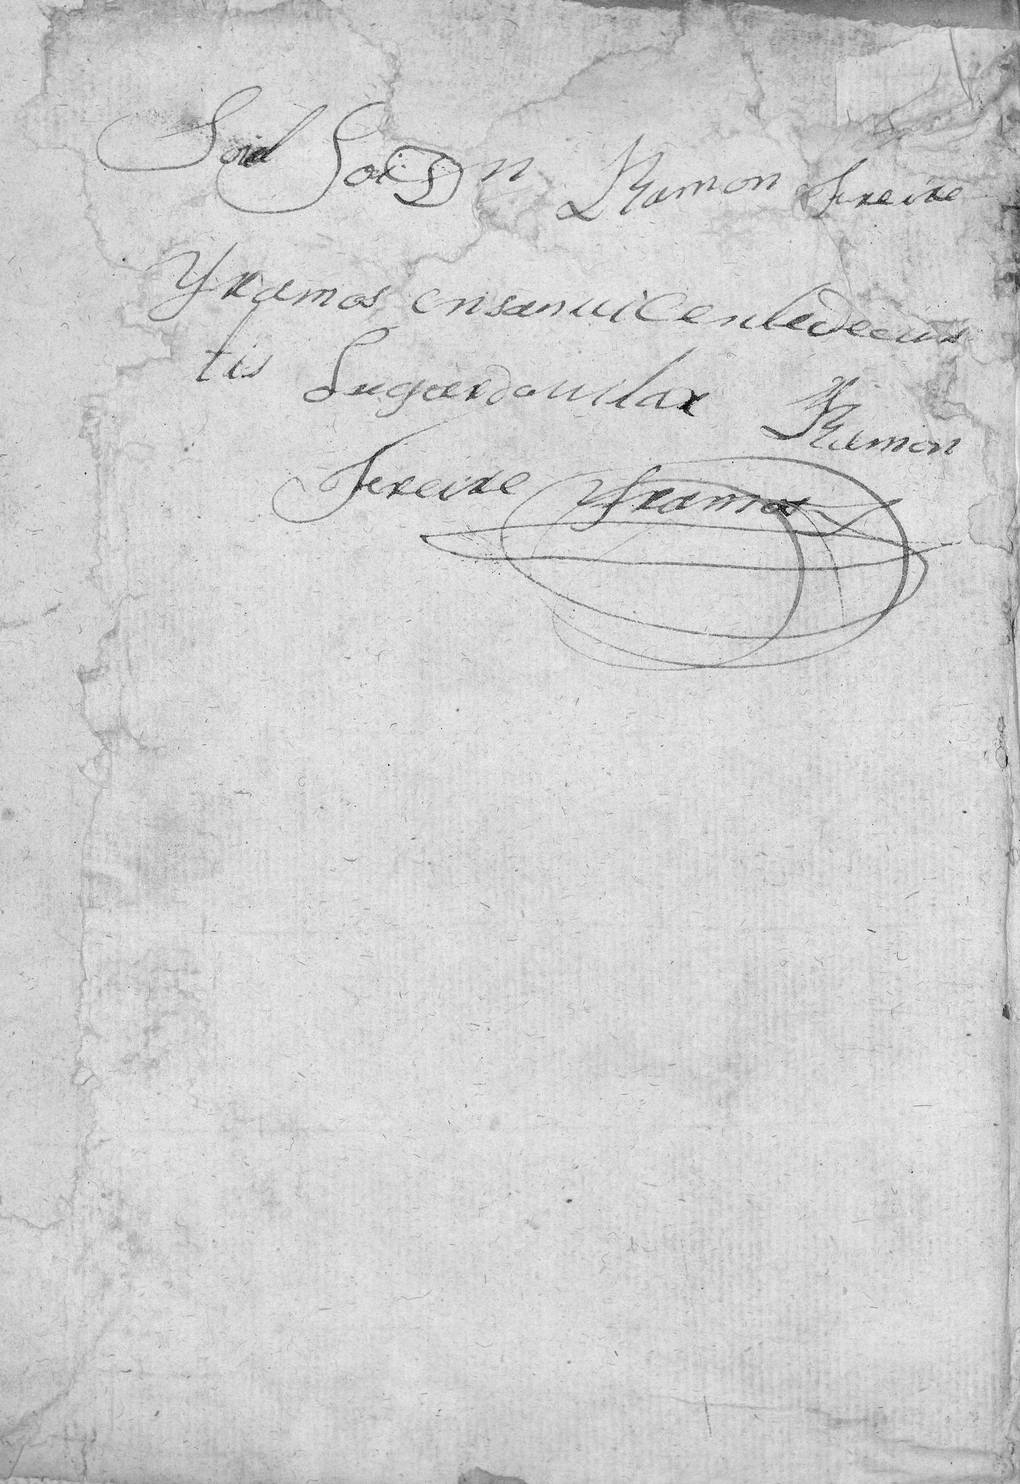 Soid Soi Dn Ramon Freire
Yramos ensanuicentedecus
tis Lugardauilar Ramon
Freire Yramos